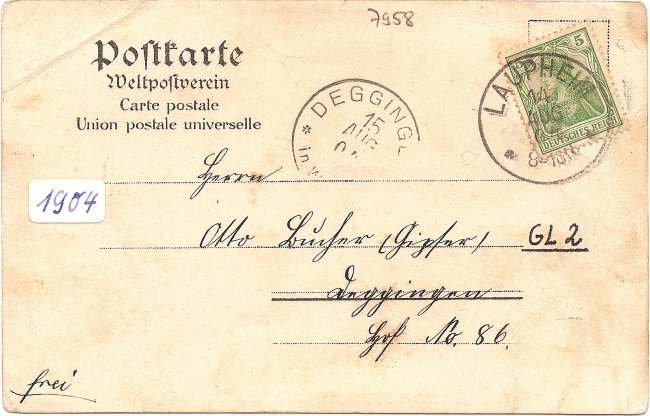 7958
Postkarte
Weltpostverein
Carte postale
Union postale universelle
5
DEUTSCHES REICH
LAUPHEIM
14
AUG
04
8-9
DEGGINGE
15
AUG
04
in W
Herrn
1904
Otto Bucher (Gipser) GL2
Deggingen
Hof No. 86.
frei